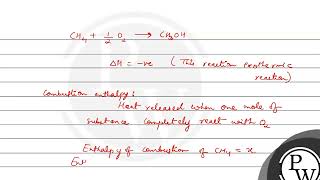 CH₄ + 1/2 O₂ → CH₃OH
ΔH = -ve (This reaction exothermic reaction)
Combustion enthalpy:
Heat released when one mole of
substance completely react with O₂
Enthalpy of combustion of CH₄ = x
En
PW